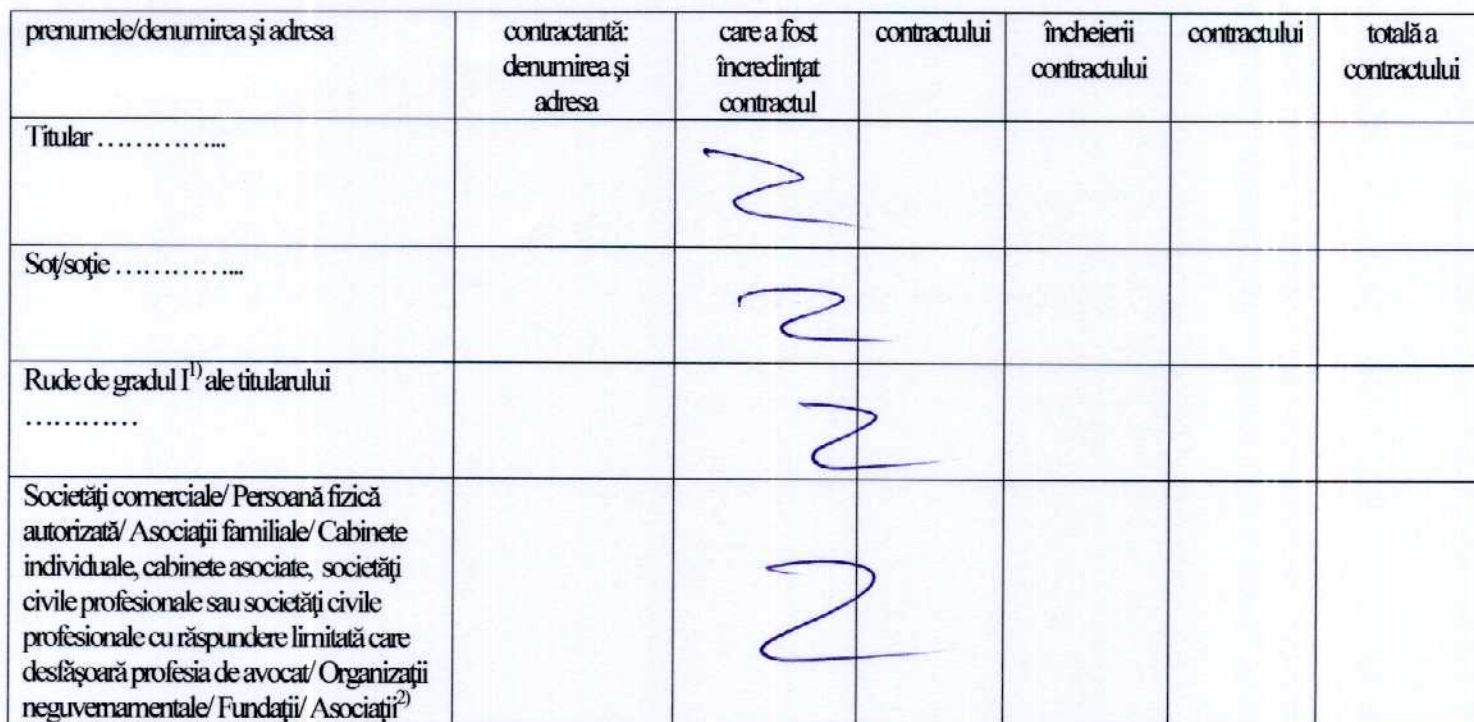 prenumele/denumirea şi adresa
contractantă:
denumirea şi
adresa
care a fost
încredinţat
contractul
contractului
încheierii
contractului
contractului
totală a
contractului
Titular …………...
Soţ/soţie …………...
Rude de gradul I1) ale titularului
…………
Societăţi comerciale/ Persoană fizică
autorizată/ Asociaţii familiale/ Cabinete
individuale, cabinete asociate, societăţi
civile profesionale sau societăţi civile
profesionale cu răspundere limitată care
desfăşoară profesia de avocat/ Organizaţii
neguvernamentale/ Fundaţii/ Asociaţii2)